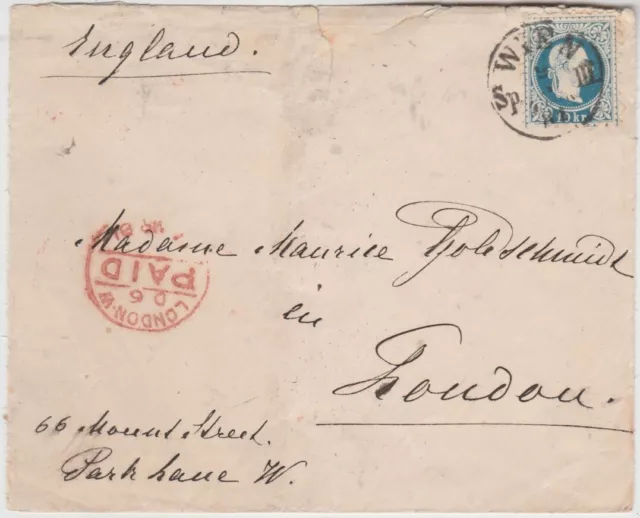 England.
WIEN
III
10 kr
Madame Maurice Goldschmidt
in
London.
LONDON·W
D6
PAID
66 Mount Street.
Park Lane W.